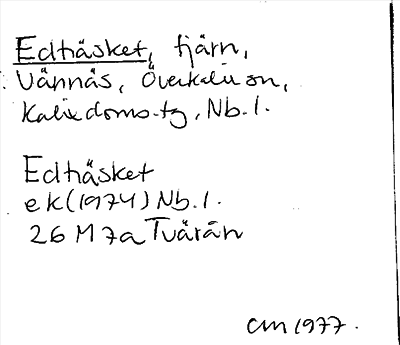 Edträsket, tjärn,
Vännäs, Överkalix sn,
Kalix doms.tg, Nb.l.
Edträsket
ek (1974) Nb.l.
26 M 7a Tvärån
CM 1977.